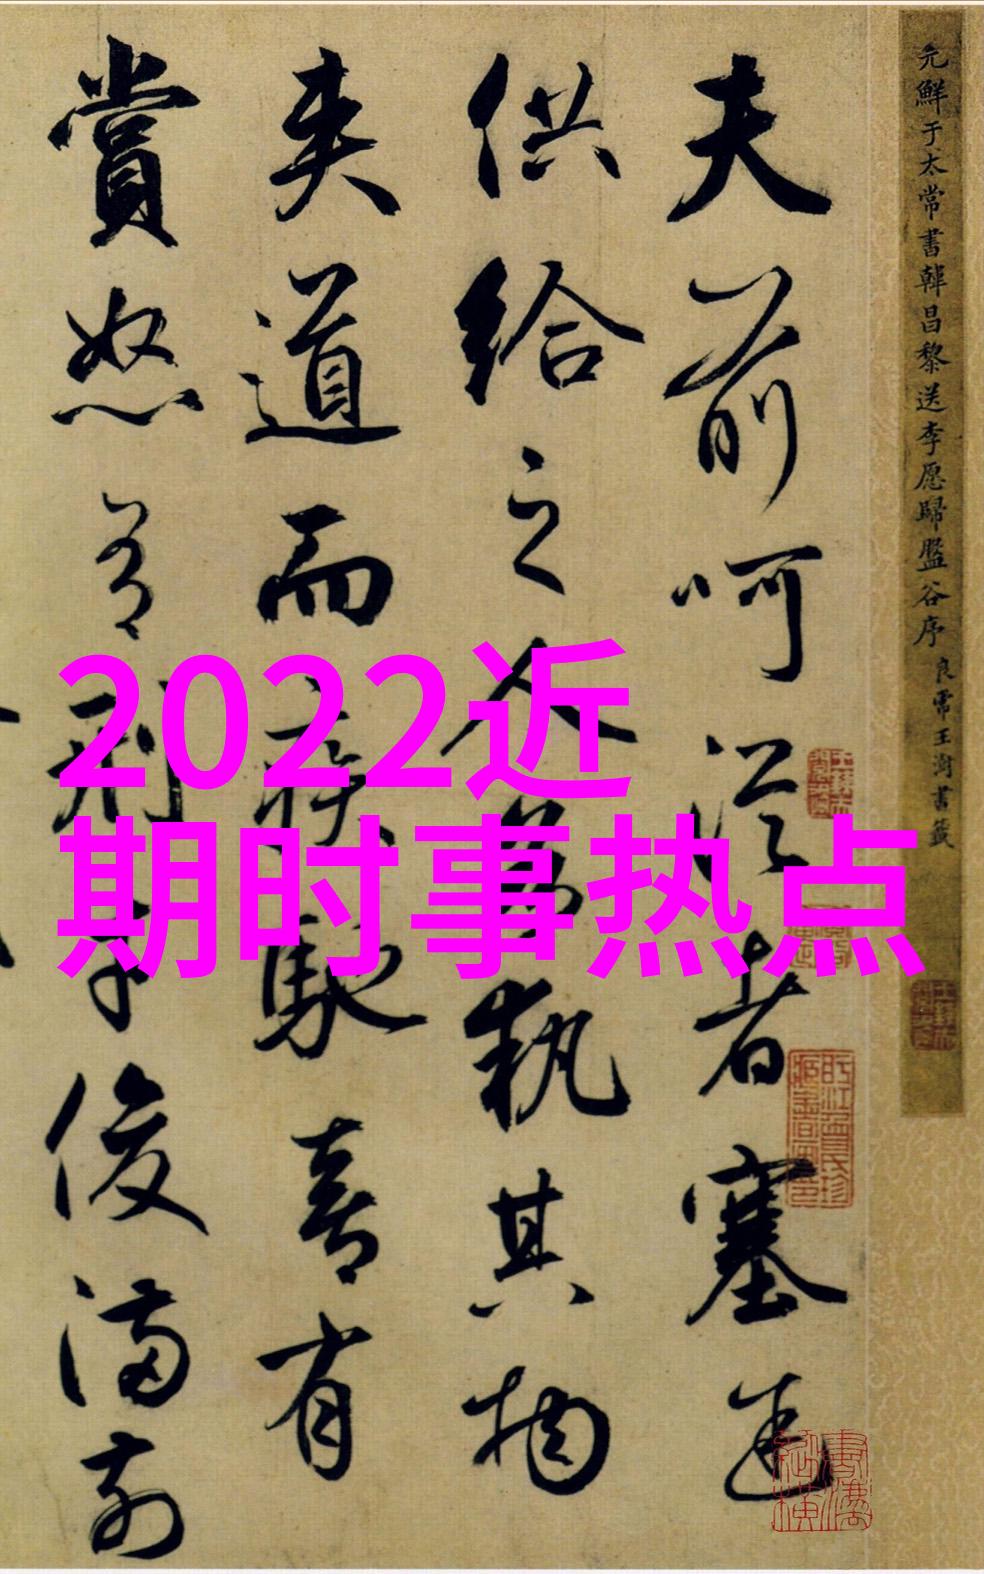 元鮮于太常書韓昌黎送李愿歸盤谷序 良常王澍書籤
夫前呵從者塞途
供給之人各執其物
夾道而疾馳喜有
賞怒有刑才俊滿前
2022近
期时事热点